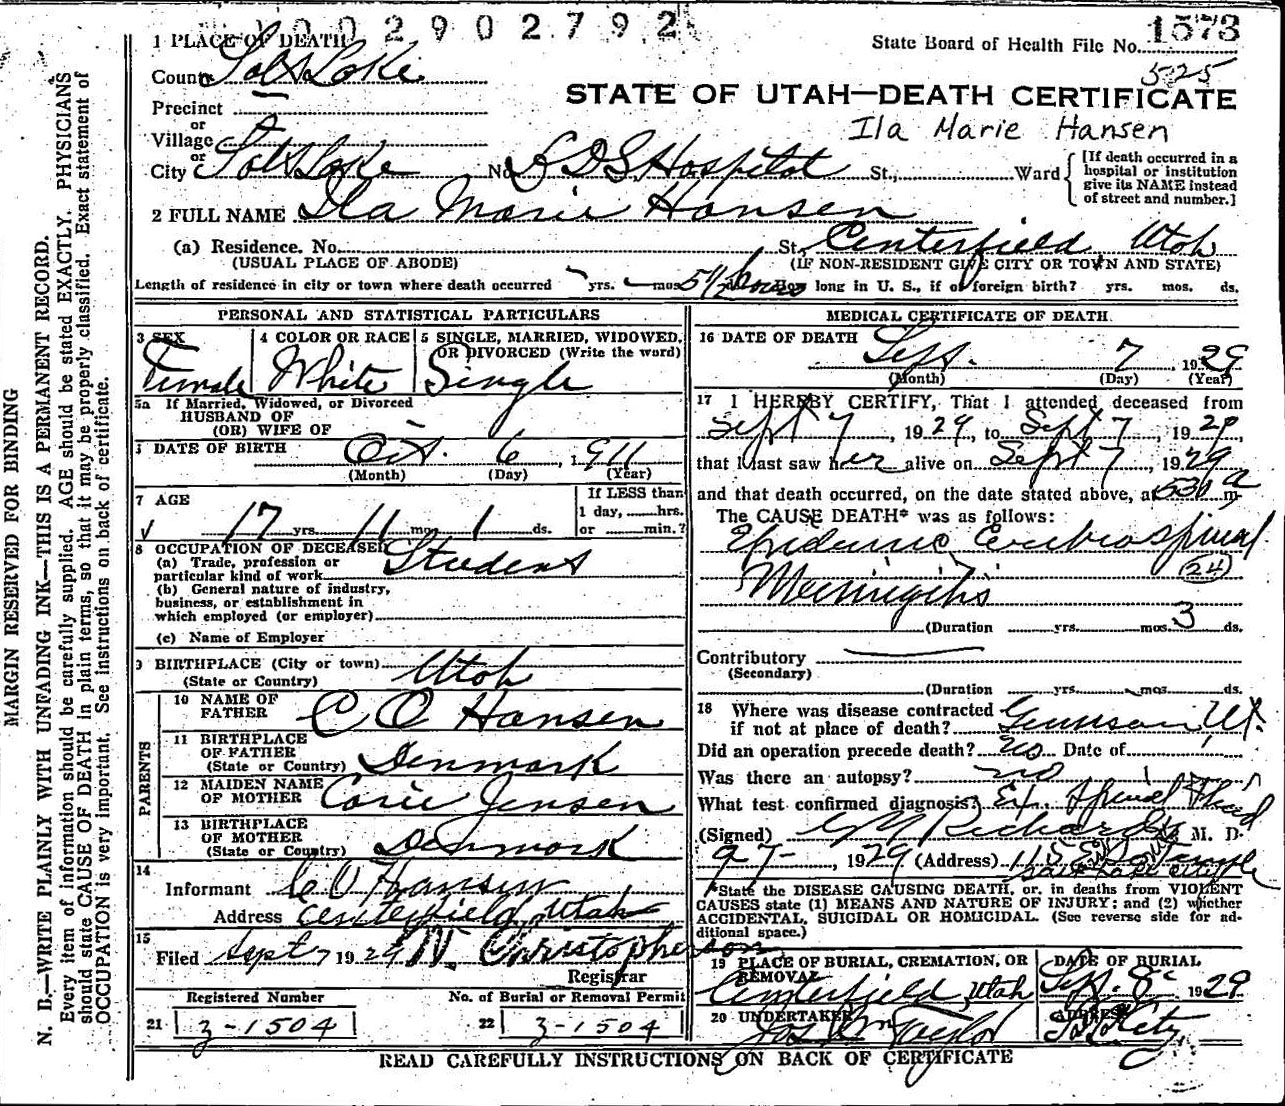 002902792
1 PLACE OF DEATH
State Board of Health File No. 1573
County Salt Lake
525
STATE OF UTAH—DEATH CERTIFICATE
Precinct
or
Village
Ila Marie Hansen
or
City Salt Lake No. L D S Hospital St., Ward
[If death occurred in a
hospital or institution
give its NAME instead
of street and number.]
2 FULL NAME Ila Marie Hansen
(a) Residence. No. St., Centerfield Utah
(USUAL PLACE OF ABODE) (IF NON-RESIDENT GIVE CITY OR TOWN AND STATE)
Length of residence in city or town where death occurred yrs. mos. 5 1/2 hours How long in U. S., if of foreign birth? yrs. mos. ds.
PERSONAL AND STATISTICAL PARTICULARS
3 SEX 4 COLOR OR RACE 5 SINGLE, MARRIED, WIDOWED,
OR DIVORCED (Write the word)
Female White Single
5a If Married, Widowed, or Divorced
HUSBAND OF
(OR) WIFE OF
DATE OF BIRTH Oct. 6, 1911
(Month) (Day) (Year)
7 AGE If LESS than
1 day, hrs.
17 yrs. 11 mo. 1 ds. or min.?
8 OCCUPATION OF DECEASED Student
(a) Trade, profession or
particular kind of work
(b) General nature of industry,
business, or establishment in
which employed (or employer)
(c) Name of Employer
9 BIRTHPLACE (City or town) Utah
(State or Country)
PARENTS
10 NAME OF
FATHER C O Hansen
11 BIRTHPLACE
OF FATHER
(State or Country) Denmark
12 MAIDEN NAME
OF MOTHER Corie Jensen
13 BIRTHPLACE
OF MOTHER
(State or Country) Denmark
14
Informant C O Hansen
Address Centerfield, Utah
15
Filed Sept 7 1929 N. Christopherson
Registrar
Registered Number No. of Burial or Removal Permit
21 3-1504 22 3-1504
MEDICAL CERTIFICATE OF DEATH.
16 DATE OF DEATH Sept. 7, 1929
(Month) (Day) (Year)
17 I HEREBY CERTIFY, That I attended deceased from
Sept 7, 1929, to Sept 7, 1929,
that I last saw her alive on Sept 7, 1929
and that death occurred, on the date stated above, at 530 a m.
The CAUSE DEATH* was as follows:
Epidemic Cerebrospinal
(24)
Meningitis
(Duration yrs. mos. 3 ds.
Contributory
(Secondary)
(Duration yrs. mos. ds.
18 Where was disease contracted
if not at place of death? Gunnison Ut.
Did an operation precede death? no Date of
Was there an autopsy? no
What test confirmed diagnosis? Ex. Spinal Fluid
(Signed) G G Richards M. D.
9-7-, 1929 (Address) 115 E South Temple
Salt Lake City
*State the DISEASE CAUSING DEATH, or, in deaths from VIOLENT
CAUSES state (1) MEANS AND NATURE OF INJURY; and (2) whether
ACCIDENTAL, SUICIDAL OR HOMICIDAL. (See reverse side for ad-
ditional space.)
19 PLACE OF BURIAL, CREMATION, OR
REMOVAL
Centerfield, Utah
DATE OF BURIAL
Sept. 8 1929
20 UNDERTAKER
Jos Wm Taylor
ADDRESS
S L City
READ CAREFULLY INSTRUCTIONS ON BACK OF CERTIFICATE
MARGIN RESERVED FOR BINDING
N. B.—WRITE PLAINLY WITH UNFADING INK—THIS IS A PERMANENT RECORD.
Every item of information should be carefully supplied. AGE should be stated EXACTLY. PHYSICIANS
should state CAUSE OF DEATH in plain terms, so that it may be properly classified. Exact statement of
OCCUPATION is very important. See instructions on back of certificate.